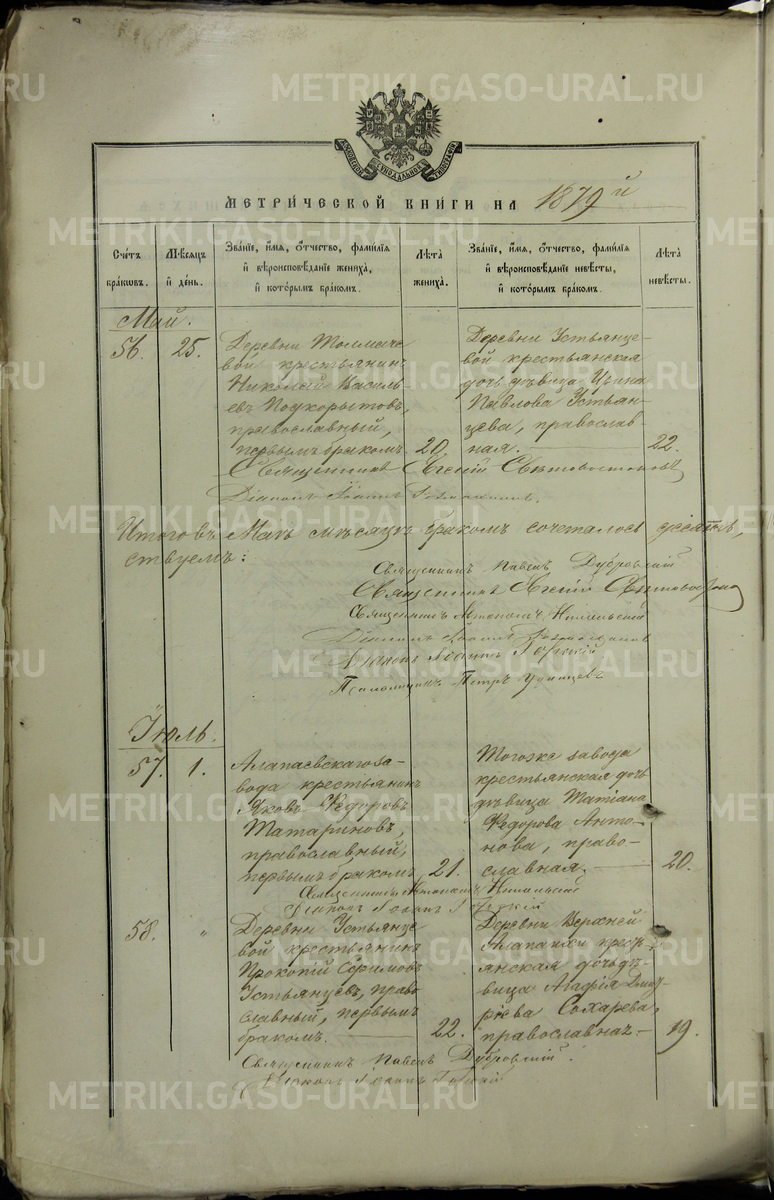 METRIKI.GASO-URAL.RU
МОСКОВСКОЙ СѴНОДАЛЬНОЙ ТИПОГРАФІИ
МЕТРИ́ЧЕСКОЙ КНИ́ГИ НА 1879й
Сче́тъ бра́кѡвъ.
Мѣ́сяцъ и҆ де́нь.
Зва́нїе, и҆́мѧ, ѻ҆́тчество, фами́лїѧ и҆ вѣроисповѣ́данїе жениха̀, и҆ кото́рымъ бра́комъ.
Лѣ́та жениха̀.
Зва́нїе, и҆́мѧ, ѻ҆́тчество, фами́лїѧ и҆ вѣроисповѣ́данїе невѣ́сты, и҆ кото́рымъ бра́комъ.
Лѣ́та невѣ́сты.
Май.
56. 25.
Деревни Толмаче-
вой крестьянинъ
Николай Василь-
евъ Подкорытовъ,
православный,
первымъ бракомъ
20.
Деревни Устьянце-
вой крестьянская
дочь дѣвица Ирина
Павлова Устьян-
цева, православ-
ная.
22.
Священникъ Евгеній
Діаконъ Іоаннъ
Итого въ Маѣ мѣсяцѣ бракомъ сочеталось
ствуемъ:
Священникъ Павелъ Дубровскій
Священникъ Евгеній
Священникъ
Діаконъ Іоаннъ
Діаконъ Іоаннъ Горный
Псаломщикъ Петръ Удинцевъ
Іюль.
57. 1.
Алапаевскаго за-
вода крестьянинъ
Яковъ Ѳедоровъ
Татариновъ,
православный,
первымъ бракомъ
21.
Тогоже завода
крестьянская дочь
дѣвица Татіана
Ѳедорова Анто-
нова, право-
славная.
20.
Священникъ
Діаконъ Іоаннъ
58. "
Деревни Устьянце-
вой крестьянинъ
Прокопій Ефимовъ
Устьянцевъ, право-
славный, первымъ
бракомъ.
22.
Деревни Верхней
Алапаихи кресть-
янская дочь дѣ-
вица Агафія Дмит-
ріева Сохарева,
православная
19.
Священникъ Павелъ Дубровскій.
Діаконъ Іоаннъ